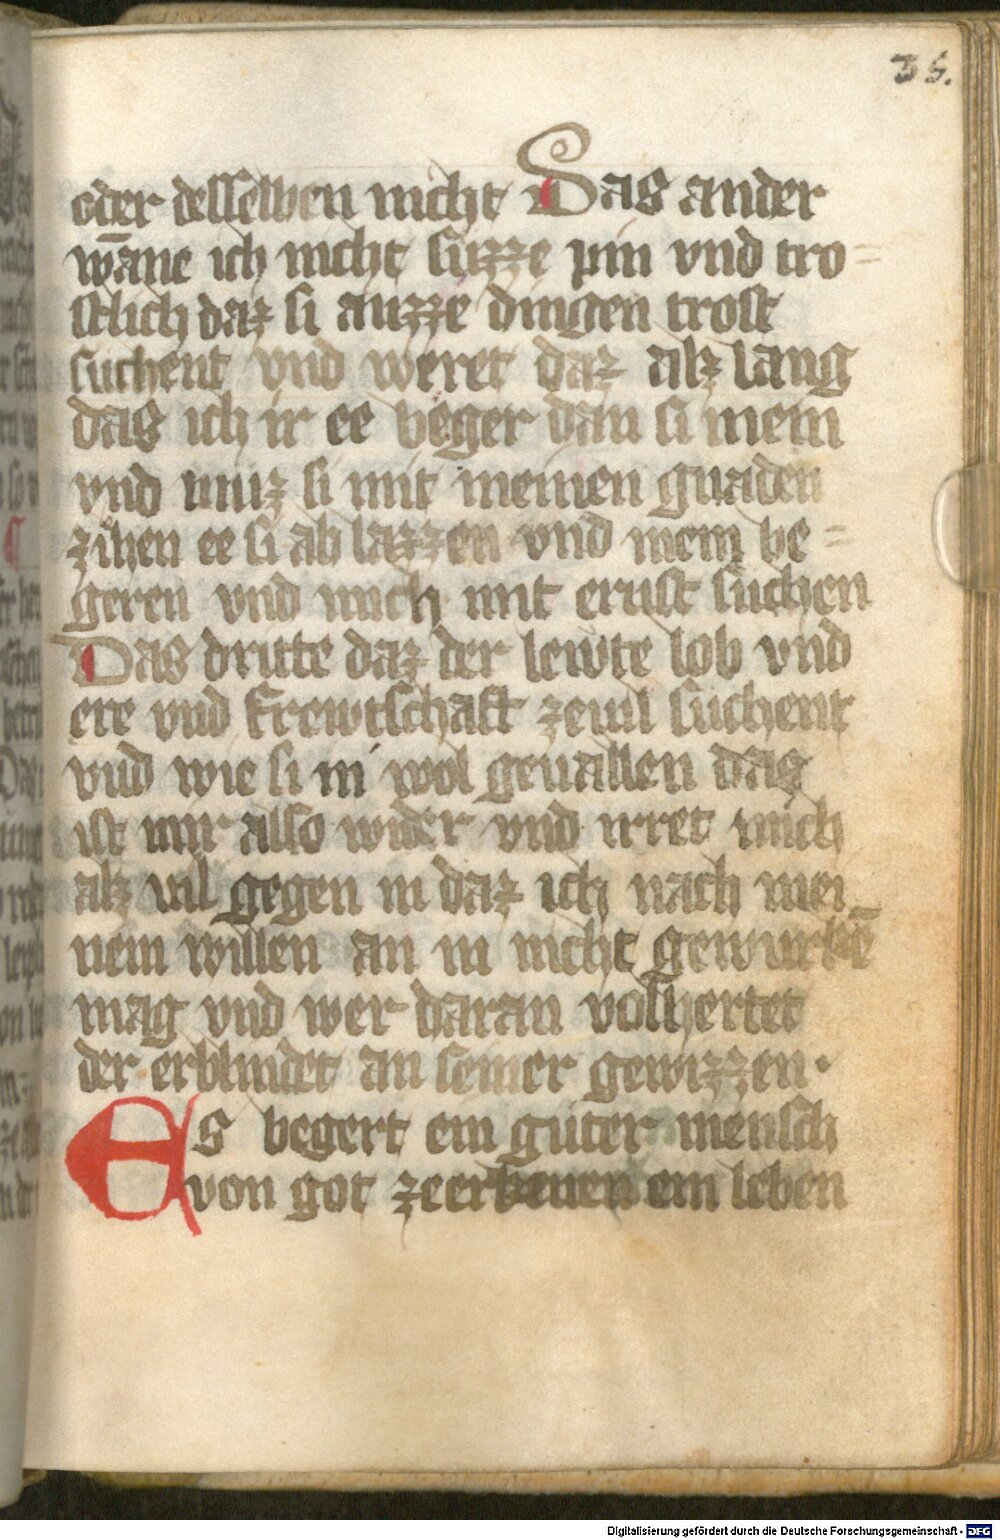 36.
oder desselben nicht Das ander
wāne ich nicht suzze pin vnd tro=
stlich daz si auzze dingen trost
suchent vnd weret daz alz lang
das ich ir ee beger dan si mein
vnd muz si mit meinen gnaden
zihen ee si ab lazzen vnd mein be=
geren vnd mich mit ernst suchen
Das dritte daz der lewte lob vnd
ere vnd frewtschaft zeuil suchent
vnd wie si in wol geuallen das
ist mir also wider vnd irret mich
alz vil gegen in daz ich nach mei
nem willen an in nicht gewurkē
mag vnd wer daran volhertet
der erblindet an seiner gewizzen·
Es begert ein guter mensch
von got ze erkenen ein leben
Digitalisierung gefördert durch die Deutsche Forschungsgemeinschaft - DFG